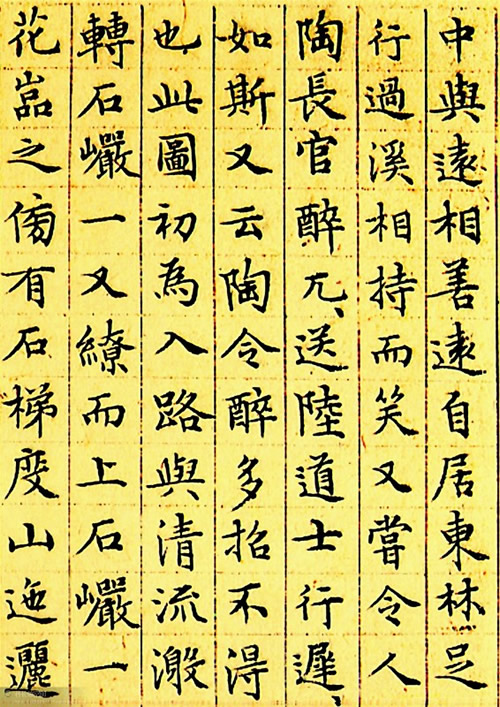 中與遠相善遠自居東林足
行過溪相持而笑又嘗令人
陶長官醉兀〻送陸道士行遲〻
如斯又云陶令醉多招不得
也此圖初為入路與清流激
轉石巗一又繚而上石巗一
花嵓之傍有石梯度山迤邐